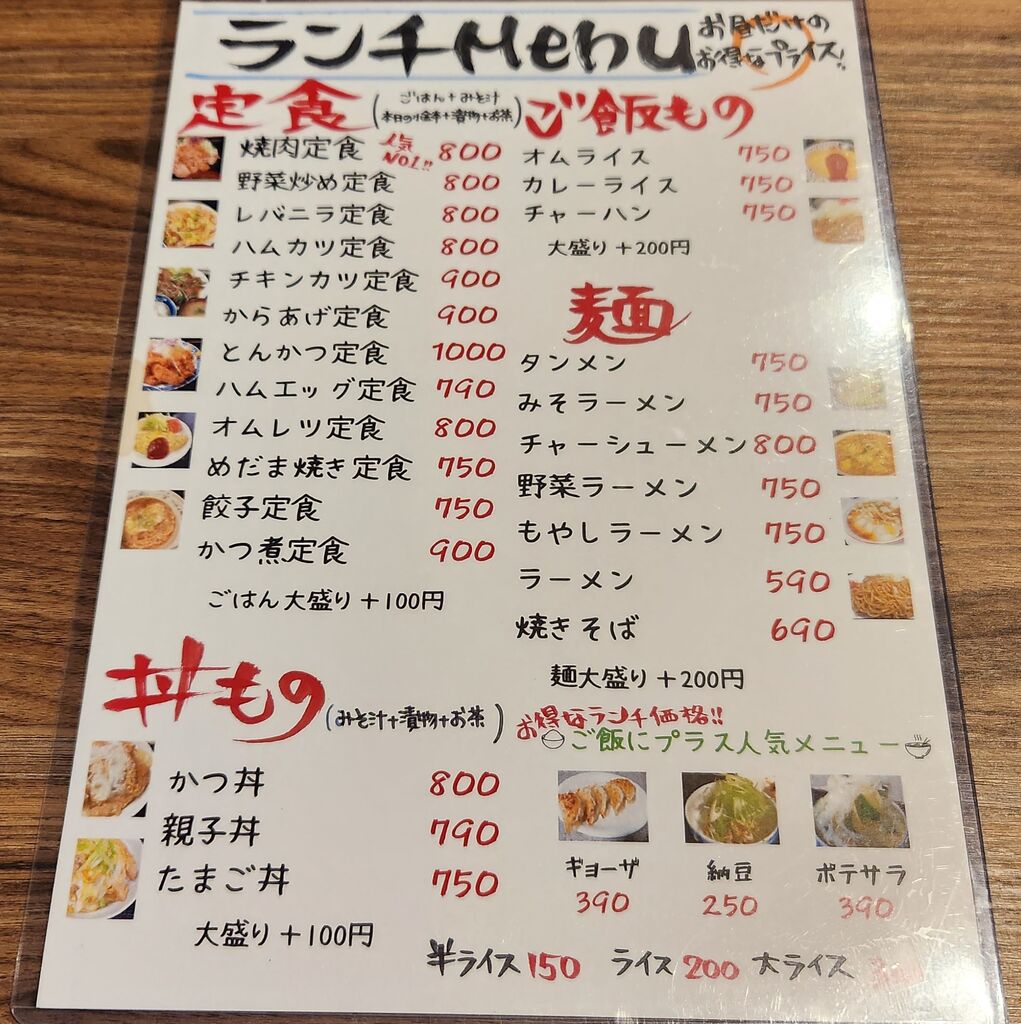 ランチMenu
お昼だけの
お得なプライス!!
定食
(ごはん+みそ汁
本日の小鉢+漬物+お茶)
焼肉定食 人気NO1.!! 800
野菜炒め定食 800
レバニラ定食 800
ハムカツ定食 800
チキンカツ定食 900
からあげ定食 900
とんかつ定食 1000
ハムエッグ定食 790
オムレツ定食 800
めだま焼き定食 750
餃子定食 750
かつ煮定食 900
ごはん大盛り+100円
丼もの
(みそ汁+漬物+お茶)
かつ丼 800
親子丼 790
たまご丼 750
大盛り+100円
ご飯もの
オムライス 750
カレーライス 750
チャーハン 750
大盛り+200円
麺
タンメン 750
みそラーメン 750
チャーシューメン 800
野菜ラーメン 750
もやしラーメン 750
ラーメン 590
焼きそば 690
麺大盛り+200円
お得なランチ価格!!
ご飯にプラス人気メニュー
ギョーザ 納豆 ポテサラ
390 250 390
半ライス150 ライス200 大ライス